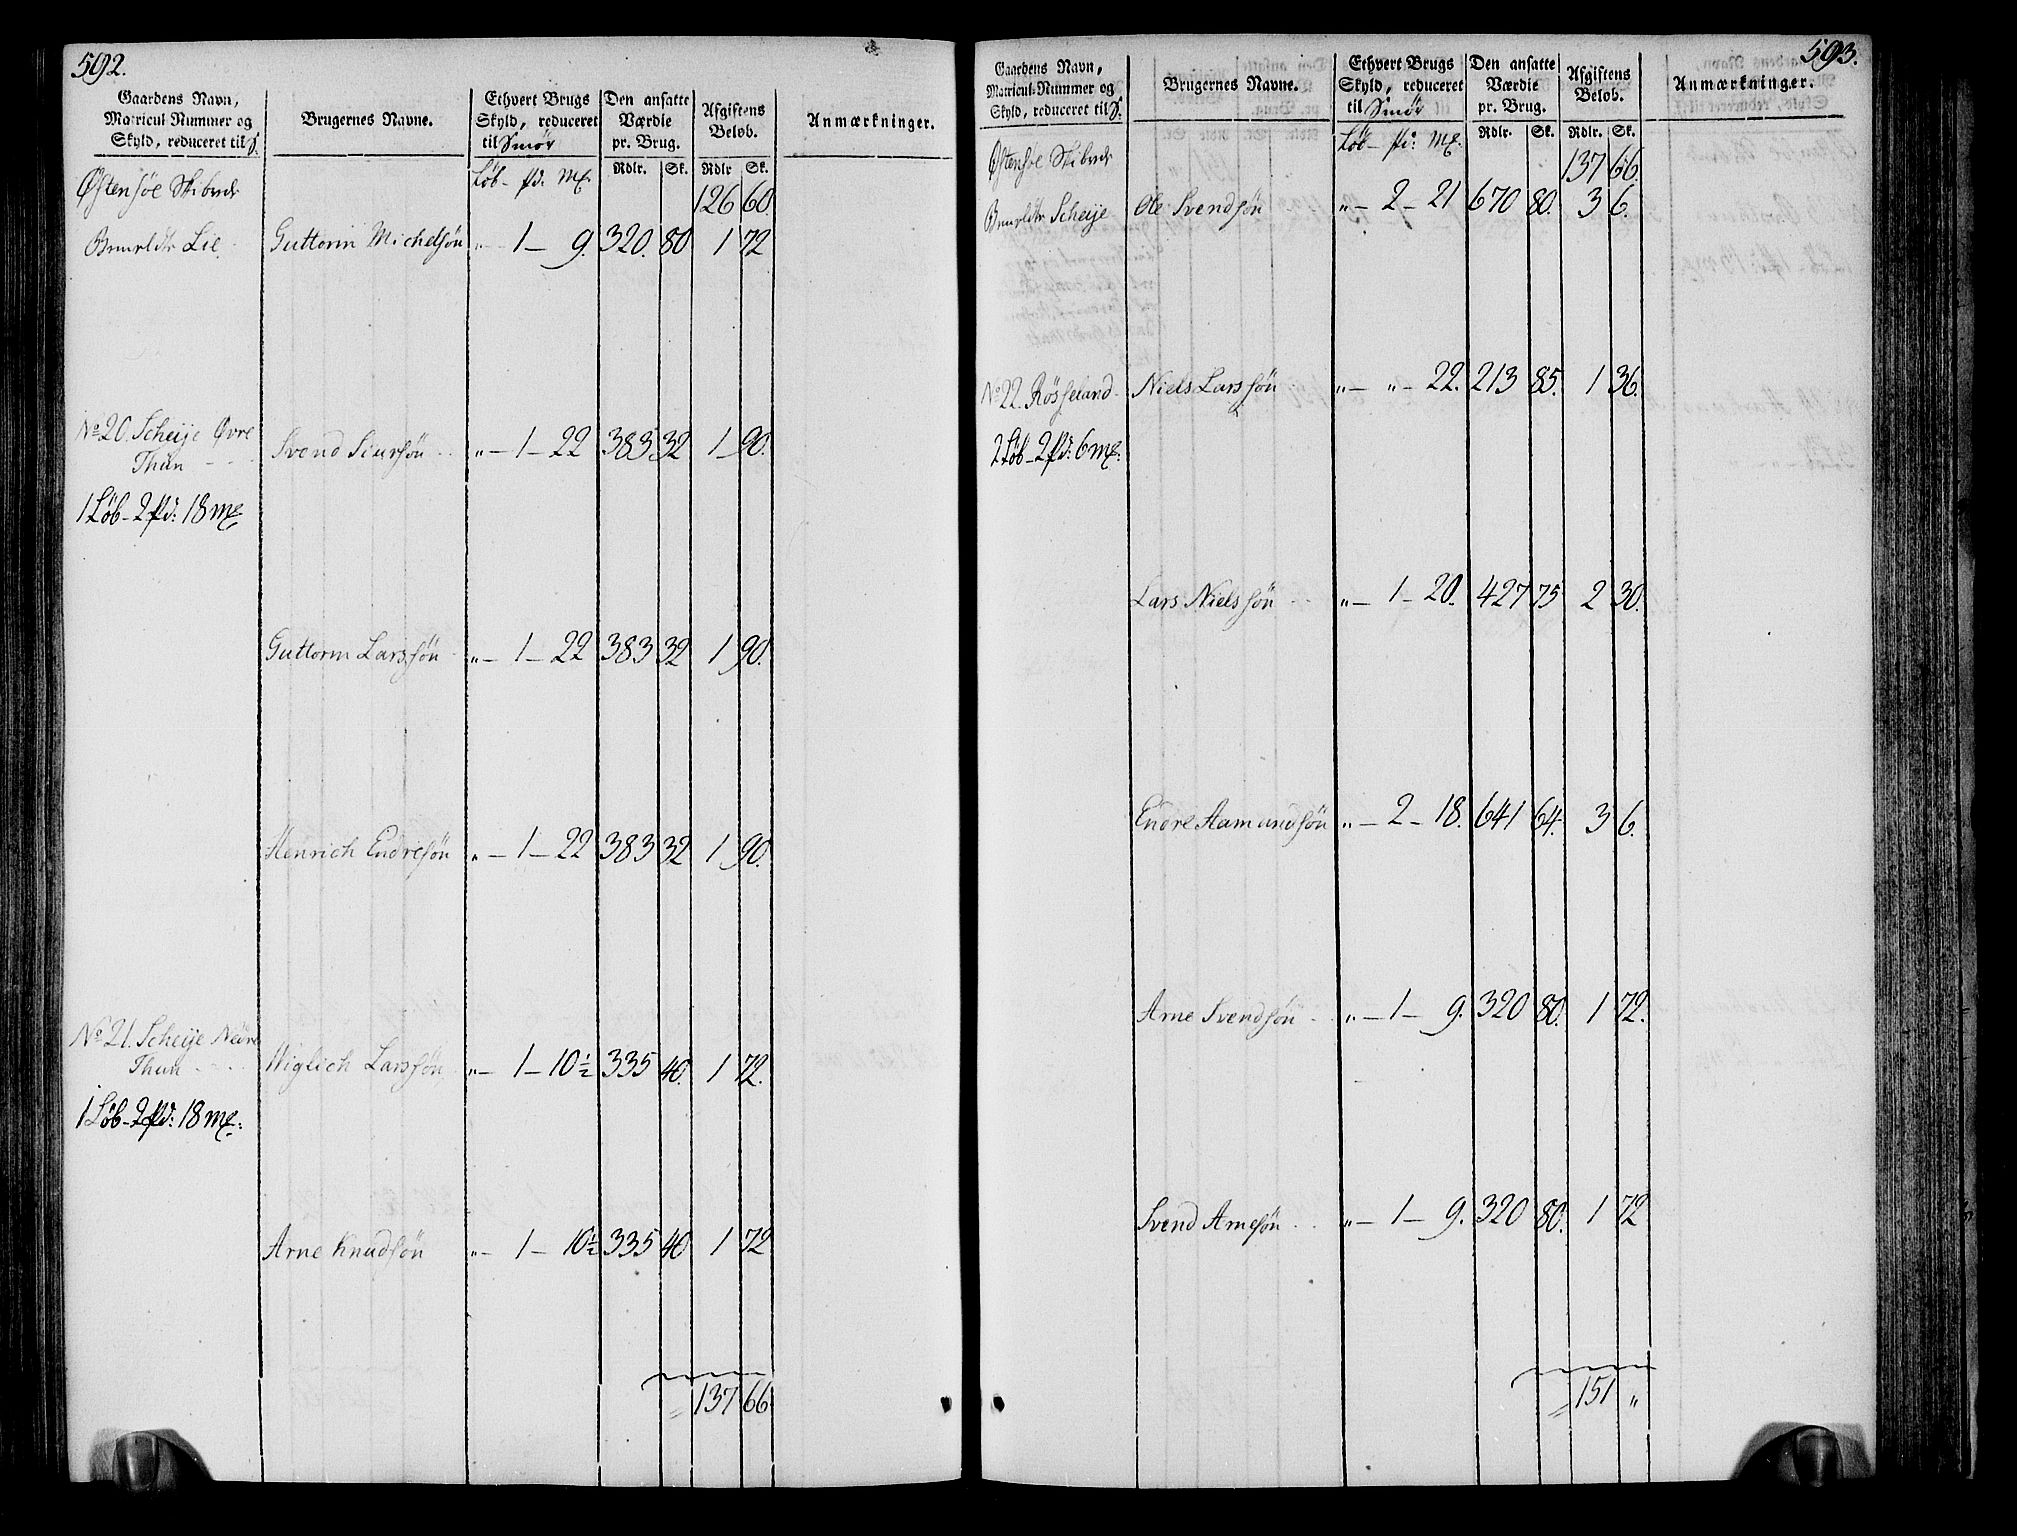 592.
Gaardens Navn, Matricul-Nummer og Skyld, reduceret til S. | Brugernes Navne. | Ethvert Brugs Skyld, reduceret til Smör | Den ansatte Værdie pr. Brug. | Afgiftens Beløb. | Anmærkninger.
Løb - pd: mk. | Rdlr. | Sk. | Rdlr | Sk.
Østensøe Skibrede 126 60.
Lie Guttorm Michelsøn „ - 1 - 9. 320. 80 1 72
No 20. Scheije Øvre
Thun - - Svend Siursøn „ - 1 - 22 383 32 1 90.
1 Løb - 2 pd: 18 mk
Guttorm Larssøn „ - 1 - 22 383 32 1 90.
Henrich Endresøn „ - 1 - 22 383 32 1 90.
No 21. Scheije Nedre
Thun - - Larssøn „ - 1 - 10½ 335 40. 1 72.
1 Løb - 2 pd: 18 mk.
Arne Knudsøn „ - 1 - 10½ 335 40 1 72
137 66
593.
Gaardens Navn, Matricul-Nummer og Skyld, reduceret til S. | Brugernes Navne. | Ethvert Brugs Skyld, reduceret til Smör | Den ansatte Værdie pr. Brug. | Afgiftens Beløb. | Anmærkninger.
Løb - pd: mk. | Rdlr. | Sk. | Rdlr. | Sk.
Østensøe Skibrede 137 66.
Scheije Ole Svendsøn „ - 2 - 21 670 80. 3 6.
No 22. Røsseland - Niels Larssøn „ - „ - 22. 213 85. 1 36.
2 Løb - 2 pd: 6 mk.
Lars Nielssøn - - „ - 1 - 20. 427 75 2 30.
Endre Aamundsøn „ - 2 - 18. 641 64. 3 6.
Arne Svendsøn - „ - 1 - 9. 320 80. 1 72.
Svend Arnesøn - - „ - 1 - 9. 320 80. 1 72
151 „